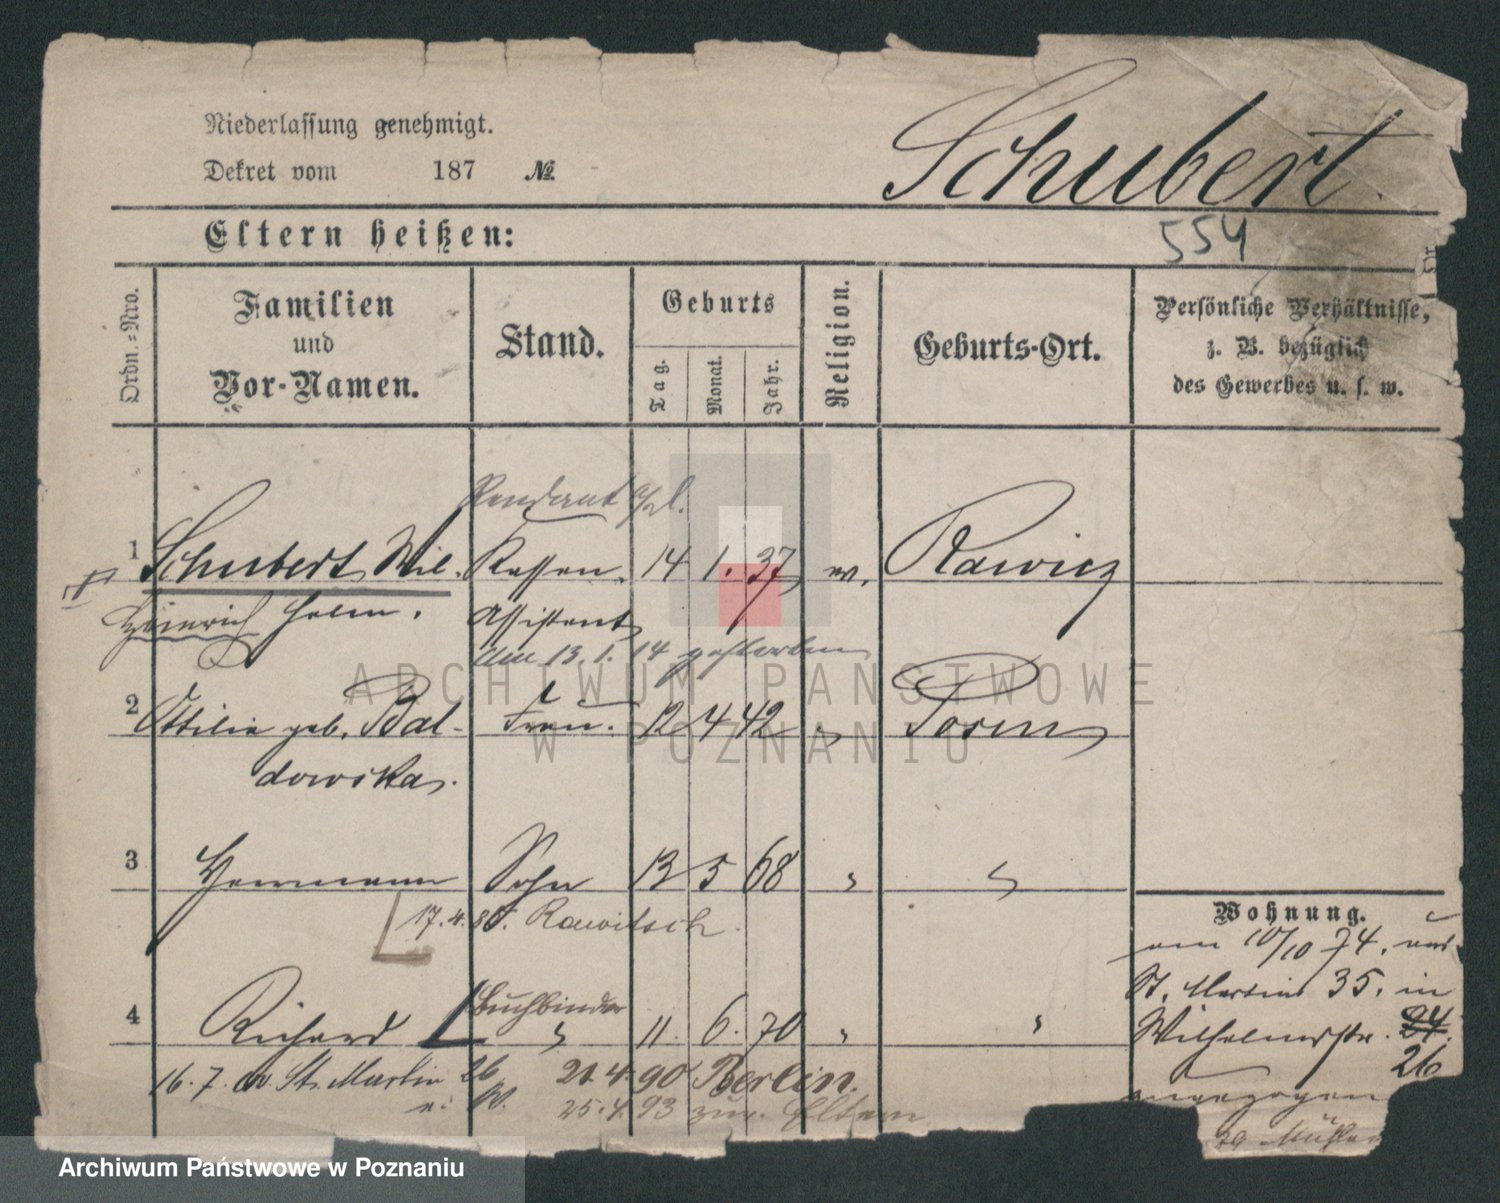 Niederlassung genehmigt.
Dekret vom 187 №
Schubert.
554
Eltern heißen:
Ordn.-Nro.
Familien
und
Vor-Namen.
Stand.
Geburts
Tag.
Monat.
Jahr.
Religion.
Geburts-Ort.
Persönliche Verhältnisse,
z. B. bezüglich
des Gewerbes u. s. w.
Rendant
1 Schubert Wil- Kassen- 14 1. 37 ev. Rawicz
Heinrich helm. Assistent
am 13. 1. 14 gestorben
2 Ottilie geb. Bal- Frau. 12 4 42 " Posen
dowska.
3 Hermann Sohn 13 5 68 " "
17. 4. 86. Rawitsch.
Wohnung.
am 10/10 74. aus
St. Martin 35. in
Buchbinder
4 Richard " 11. 6. 70 " "
Wilhelmstr. 24.
26
16. 7. St. Martin 26 21. 4. 90 Berlin.
angezogen
25. 4. 93 zur. Eltern
29 Mühlen
ARCHIWUM PAŃSTWOWE
W POZNANIU
Archiwum Państwowe w Poznaniu